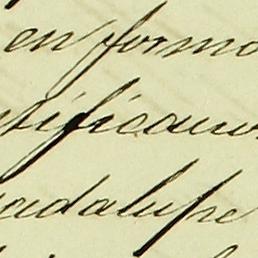 en forma
tificamos
adalupe